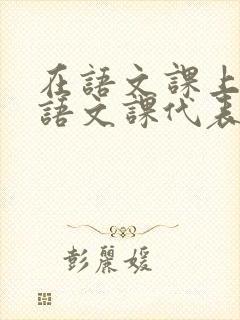 在語文課上
語文課代表
彭麗媛